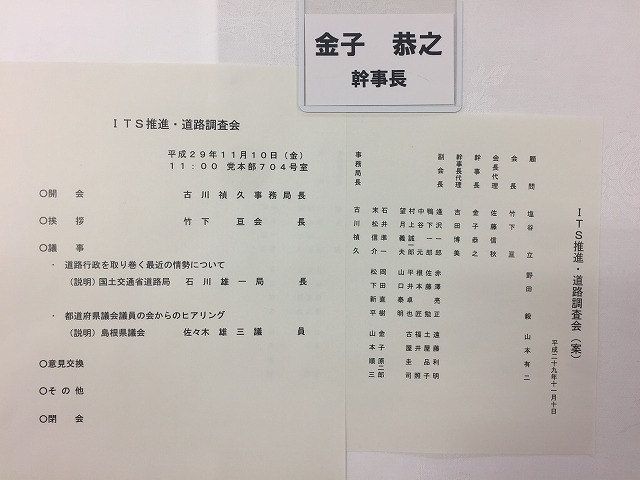 金子　恭之
幹事長
ＩＴＳ推進・道路調査会
平成２９年１１月１０日（金）
１１：００ 党本部７０４号室
〇開　会　　古川　禎久事務局長
〇挨　拶　　竹下　亘会長
〇議　事
・ 道路行政を取り巻く最近の情勢について
（説明）国土交通省道路局　石川　雄一局長
・ 都道府県議会議員の会からのヒアリング
（説明）島根県議会　佐々木　雄三議員
〇意見交換
〇その他
〇閉　会
ＩＴＳ推進・道路調査会（案）
平成二十九年十一月十日
顧問　塩谷　立　野田　毅　山本　有二
会長　竹下　亘
会長代理　佐藤　信秋
幹事長　金子　恭之
幹事長代理　吉田　博美
副会長　逢沢　一郎　赤澤　亮正　遠藤　利明
鴨下　一郎　佐藤　勉　土屋　品子
中谷　元　根本　匠　福井　照
村上　誠一郎　平井　卓也　古屋　圭司
望月　義夫　山口　泰明
石井　準一　岡田　直樹　金子　原二郎
末松　信介　松下　新平　山本　順三
事務局長　古川　禎久